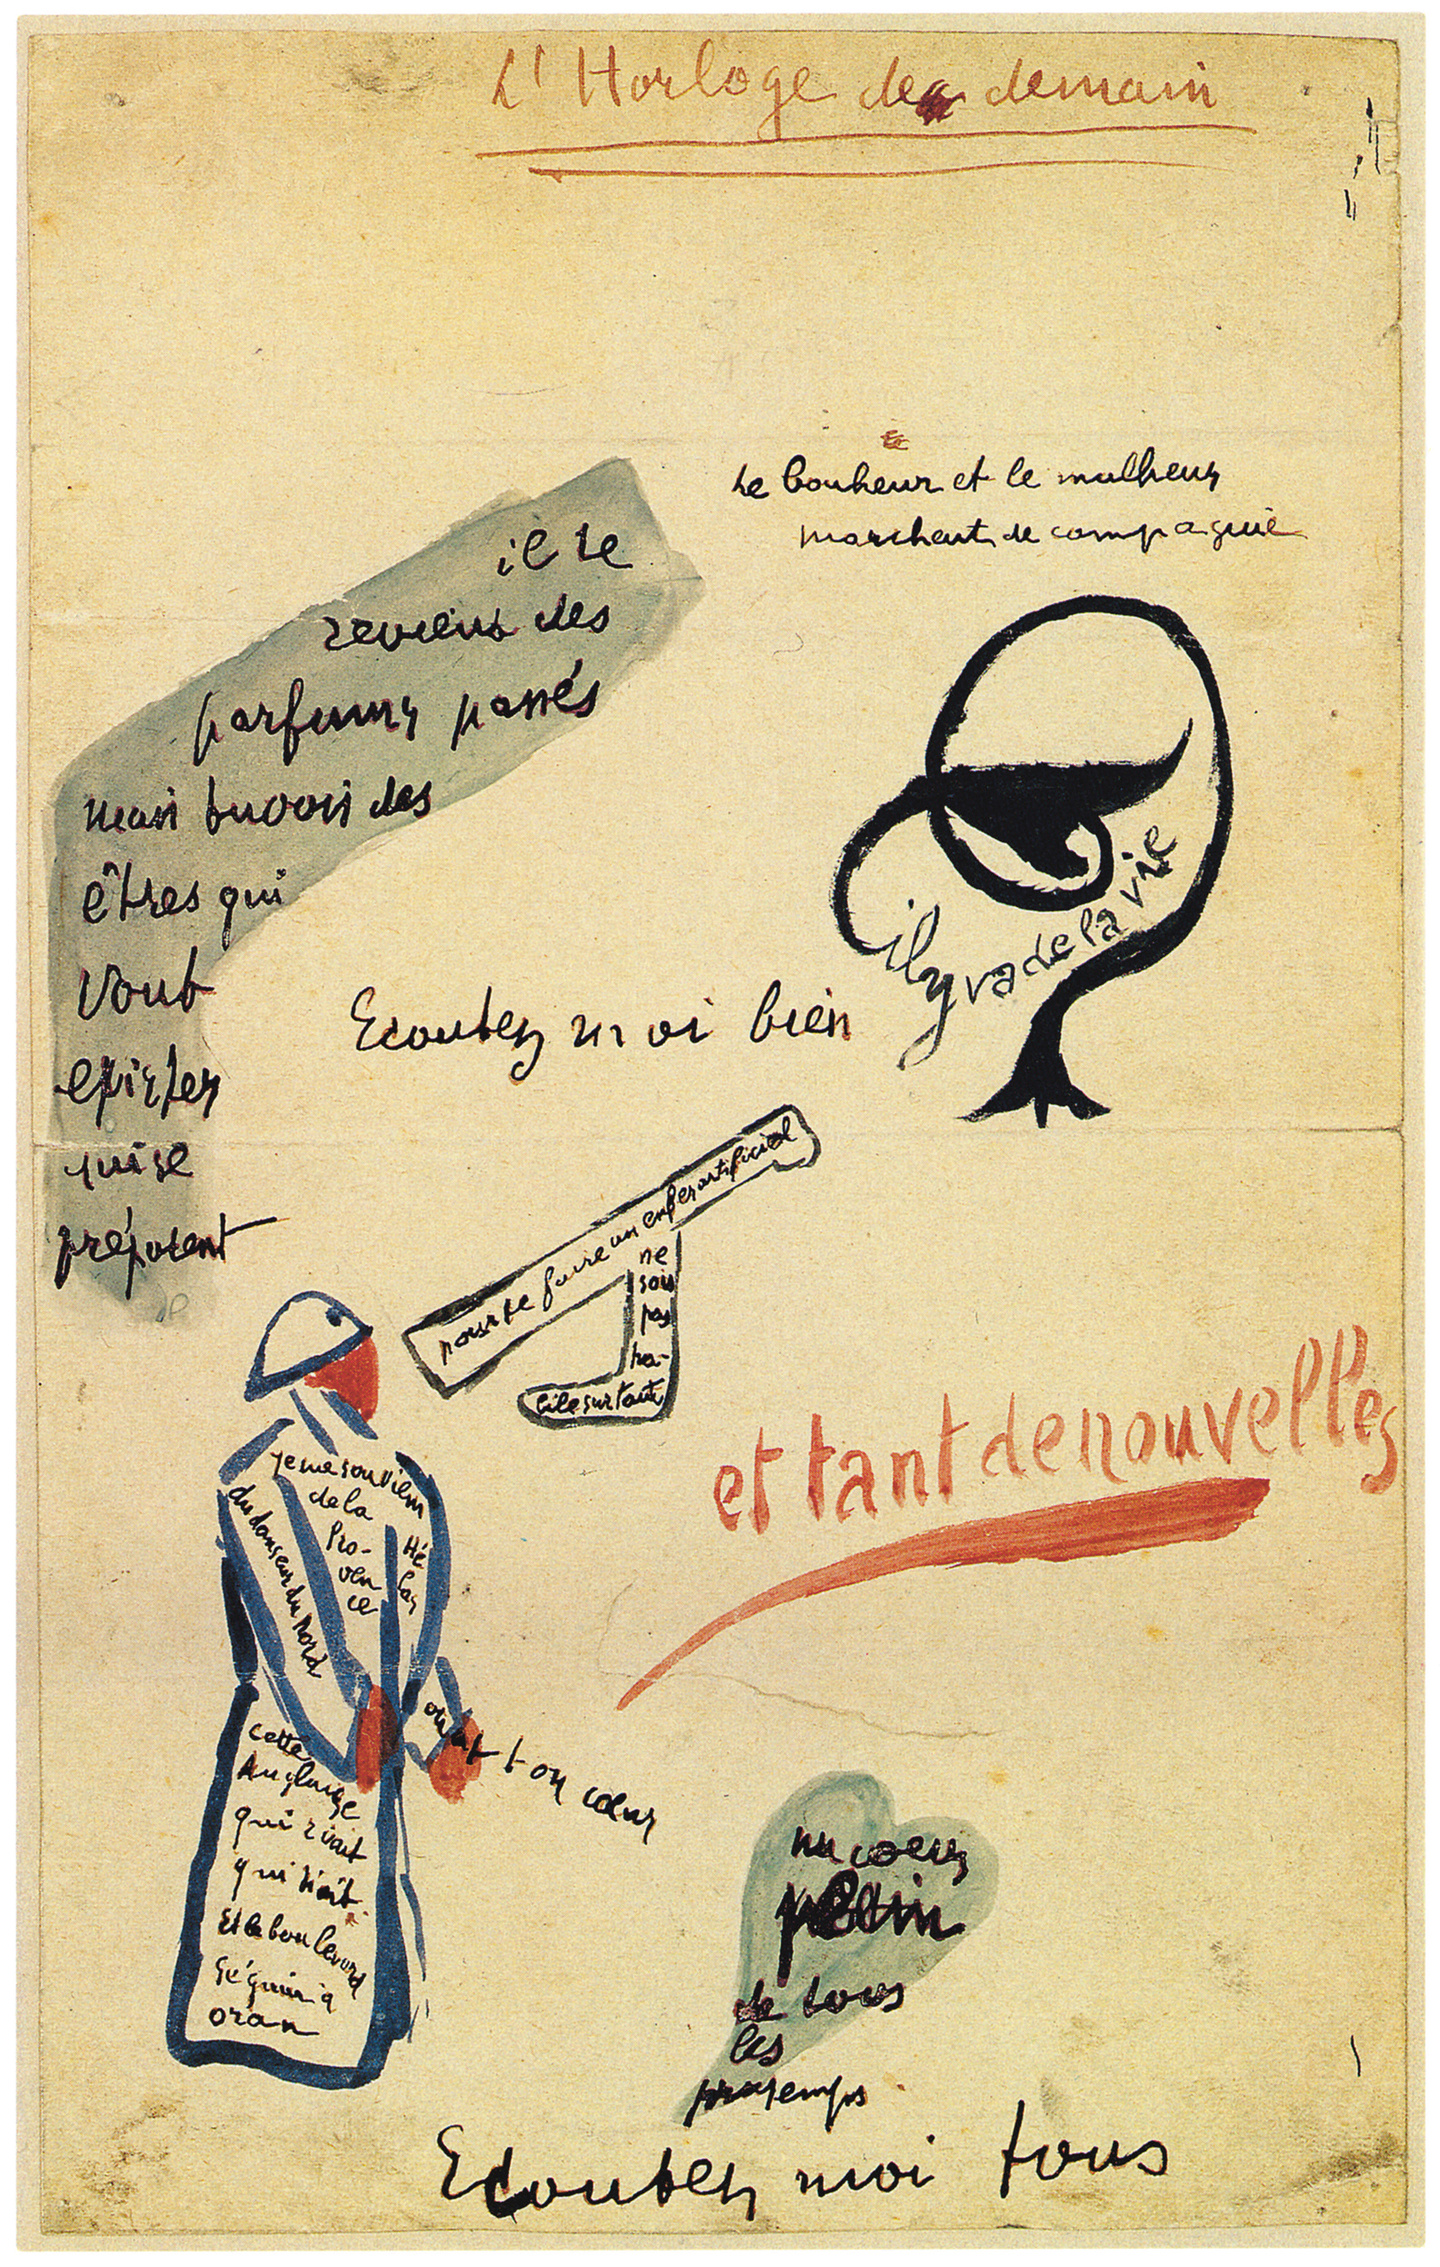 L'Horloge de demain
Le bonheur et le malheur
marchent de compagnie
il te
revient des
parfums passés
mais tu vois des
êtres qui
vont
exister
qui se
préparent
il y va de la vie
Ecoutez moi bien
pour te faire un enfer artificiel
ne
sois
pas
ha-
bile surtout
et tant de nouvelles
Je me souviens
de la
Pro-
ven
ce
Hé
las
du danseur du Nord
cette
Anglaise
qui riait
qui riait
Et le boulevard
Séguin à
oran
ouvrant ton cœur
un coeur
de tous
les
printemps
Ecoutez moi tous